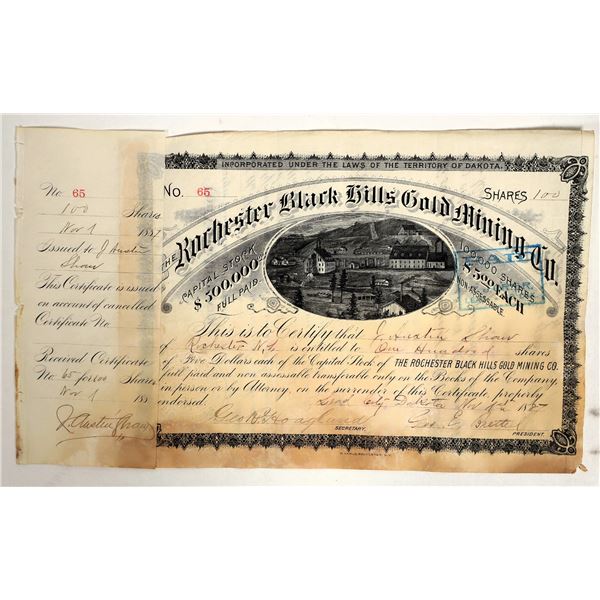 No. 65
100 Shares
Nov 1 1887
Issued to J Austin
Shaw
This Certificate is issued
on account of cancelled
Certificate No.
Received Certificate
No. 65 for 100 Shares
Nov 1 188
J. Austin Shaw
INCORPORATED UNDER THE LAWS OF THE TERRITORY OF DAKOTA.
No. 65
SHARES 100
THE Rochester Black Hills Gold Mining Co.
CAPITAL STOCK
$500,000.
FULL PAID.
100,000 SHARES
$5.00 EACH
NON ASSESSABLE.
This is to Certify that J. Austin Shaw
of Rochester N.Y. is entitled to One Hundred shares
of Five Dollars each of the Capital Stock of THE ROCHESTER BLACK HILLS GOLD MINING CO.
full paid and non assessable transferable only on the Books of the Company,
in person or by Attorney, on the surrender of this Certificate properly
endorsed. Lead City Dakota Nov 1 1887
Geo. H. Hoagland
SECRETARY.
PRESIDENT.